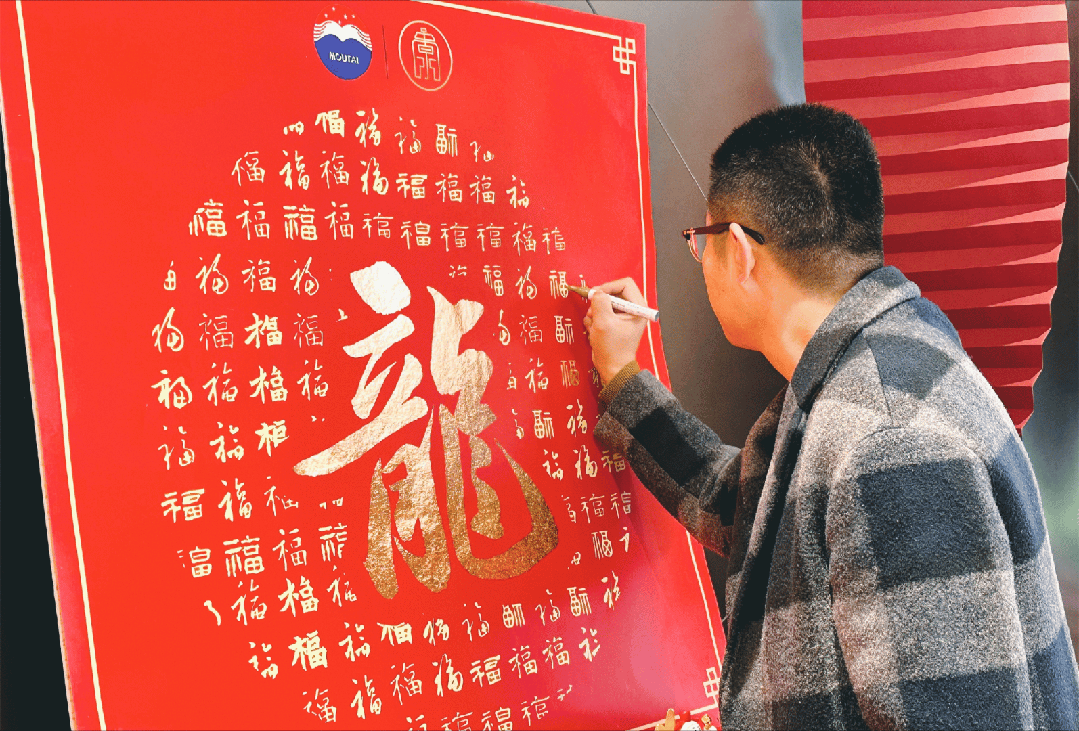 MOUTAI
福 福 福 福
福 福 福 福 福 福 福 福
福 福 福 福 福 福 福 福 福 福
福 福 福 福 福 福
福 福 福 福 福 福
福 福 福 福 福 福
龍
福 福 福 福 福
福 福 福 福 福
福 福 福 福 福 福
福 福 福 福
福 福 福 福 福 福 福
福 福 福 福 福 福 福 福
福 福 福 福 福 福 福
福 福 福